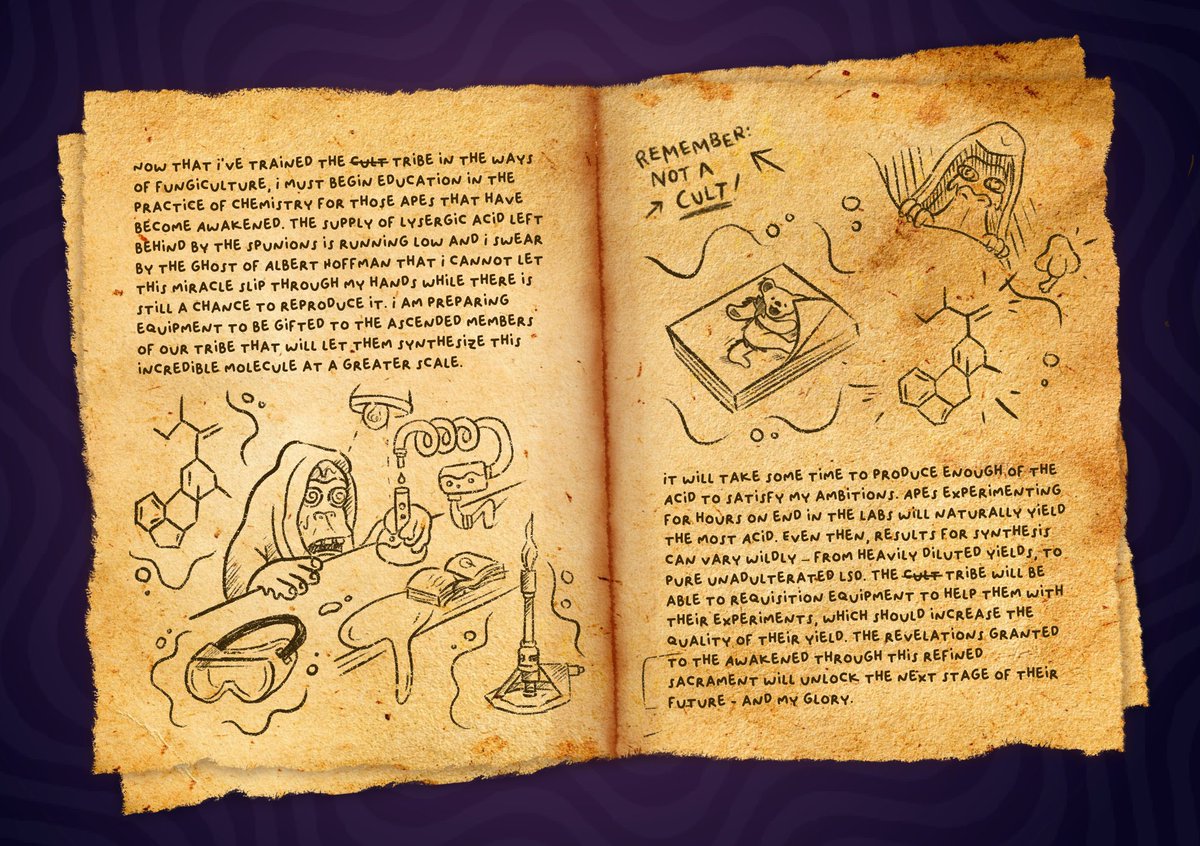 NOW THAT I'VE TRAINED THE CULT TRIBE IN THE WAYS
OF FUNGICULTURE, I MUST BEGIN EDUCATION IN THE
PRACTICE OF CHEMISTRY FOR THOSE APES THAT HAVE
BECOME AWAKENED. THE SUPPLY OF LYSERGIC ACID LEFT
BEHIND BY THE SPUNIONS IS RUNNING LOW AND I SWEAR
BY THE GHOST OF ALBERT HOFFMAN THAT I CANNOT LET
THIS MIRACLE SLIP THROUGH MY HANDS WHILE THERE IS
STILL A CHANCE TO REPRODUCE IT. I AM PREPARING
EQUIPMENT TO BE GIFTED TO THE ASCENDED MEMBERS
OF OUR TRIBE THAT WILL LET THEM SYNTHESIZE THIS
INCREDIBLE MOLECULE AT A GREATER SCALE.
REMEMBER:
NOT A
CULT!
IT WILL TAKE SOME TIME TO PRODUCE ENOUGH OF THE
ACID TO SATISFY MY AMBITIONS. APES EXPERIMENTING
FOR HOURS ON END IN THE LABS WILL NATURALLY YIELD
THE MOST ACID. EVEN THEN, RESULTS FOR SYNTHESIS
CAN VARY WILDLY - FROM HEAVILY DILUTED YIELDS, TO
PURE UNADULTERATED LSD. THE CULT TRIBE WILL BE
ABLE TO REQUISITION EQUIPMENT TO HELP THEM WITH
THEIR EXPERIMENTS, WHICH SHOULD INCREASE THE
QUALITY OF THEIR YIELD. THE REVELATIONS GRANTED
TO THE AWAKENED THROUGH THIS REFINED
SACRAMENT WILL UNLOCK THE NEXT STAGE OF THEIR
FUTURE - AND MY GLORY.